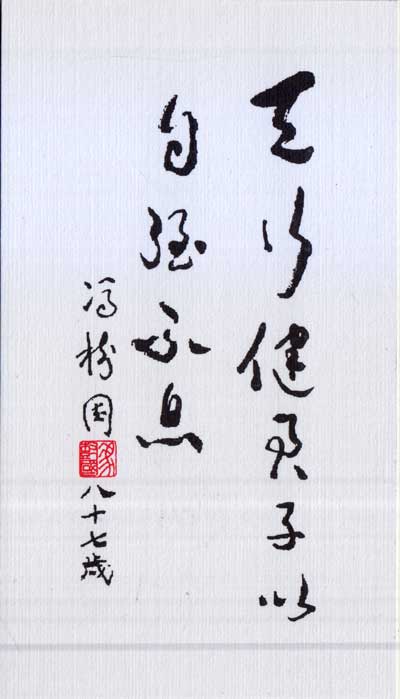 天行健君子以
自强不息
冯 国
八十七歲